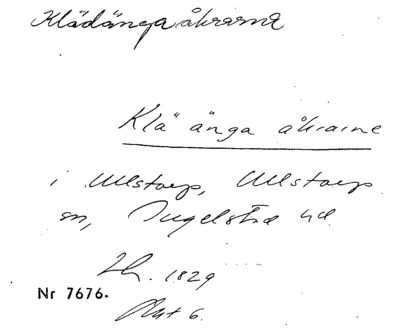 Klädänga åkrarna
Klä änga åkrarne
i Ullstorp, Ullstorps
sn, Ingelstad hd
Lh. 1829
Akt 6.
Nr 7676.